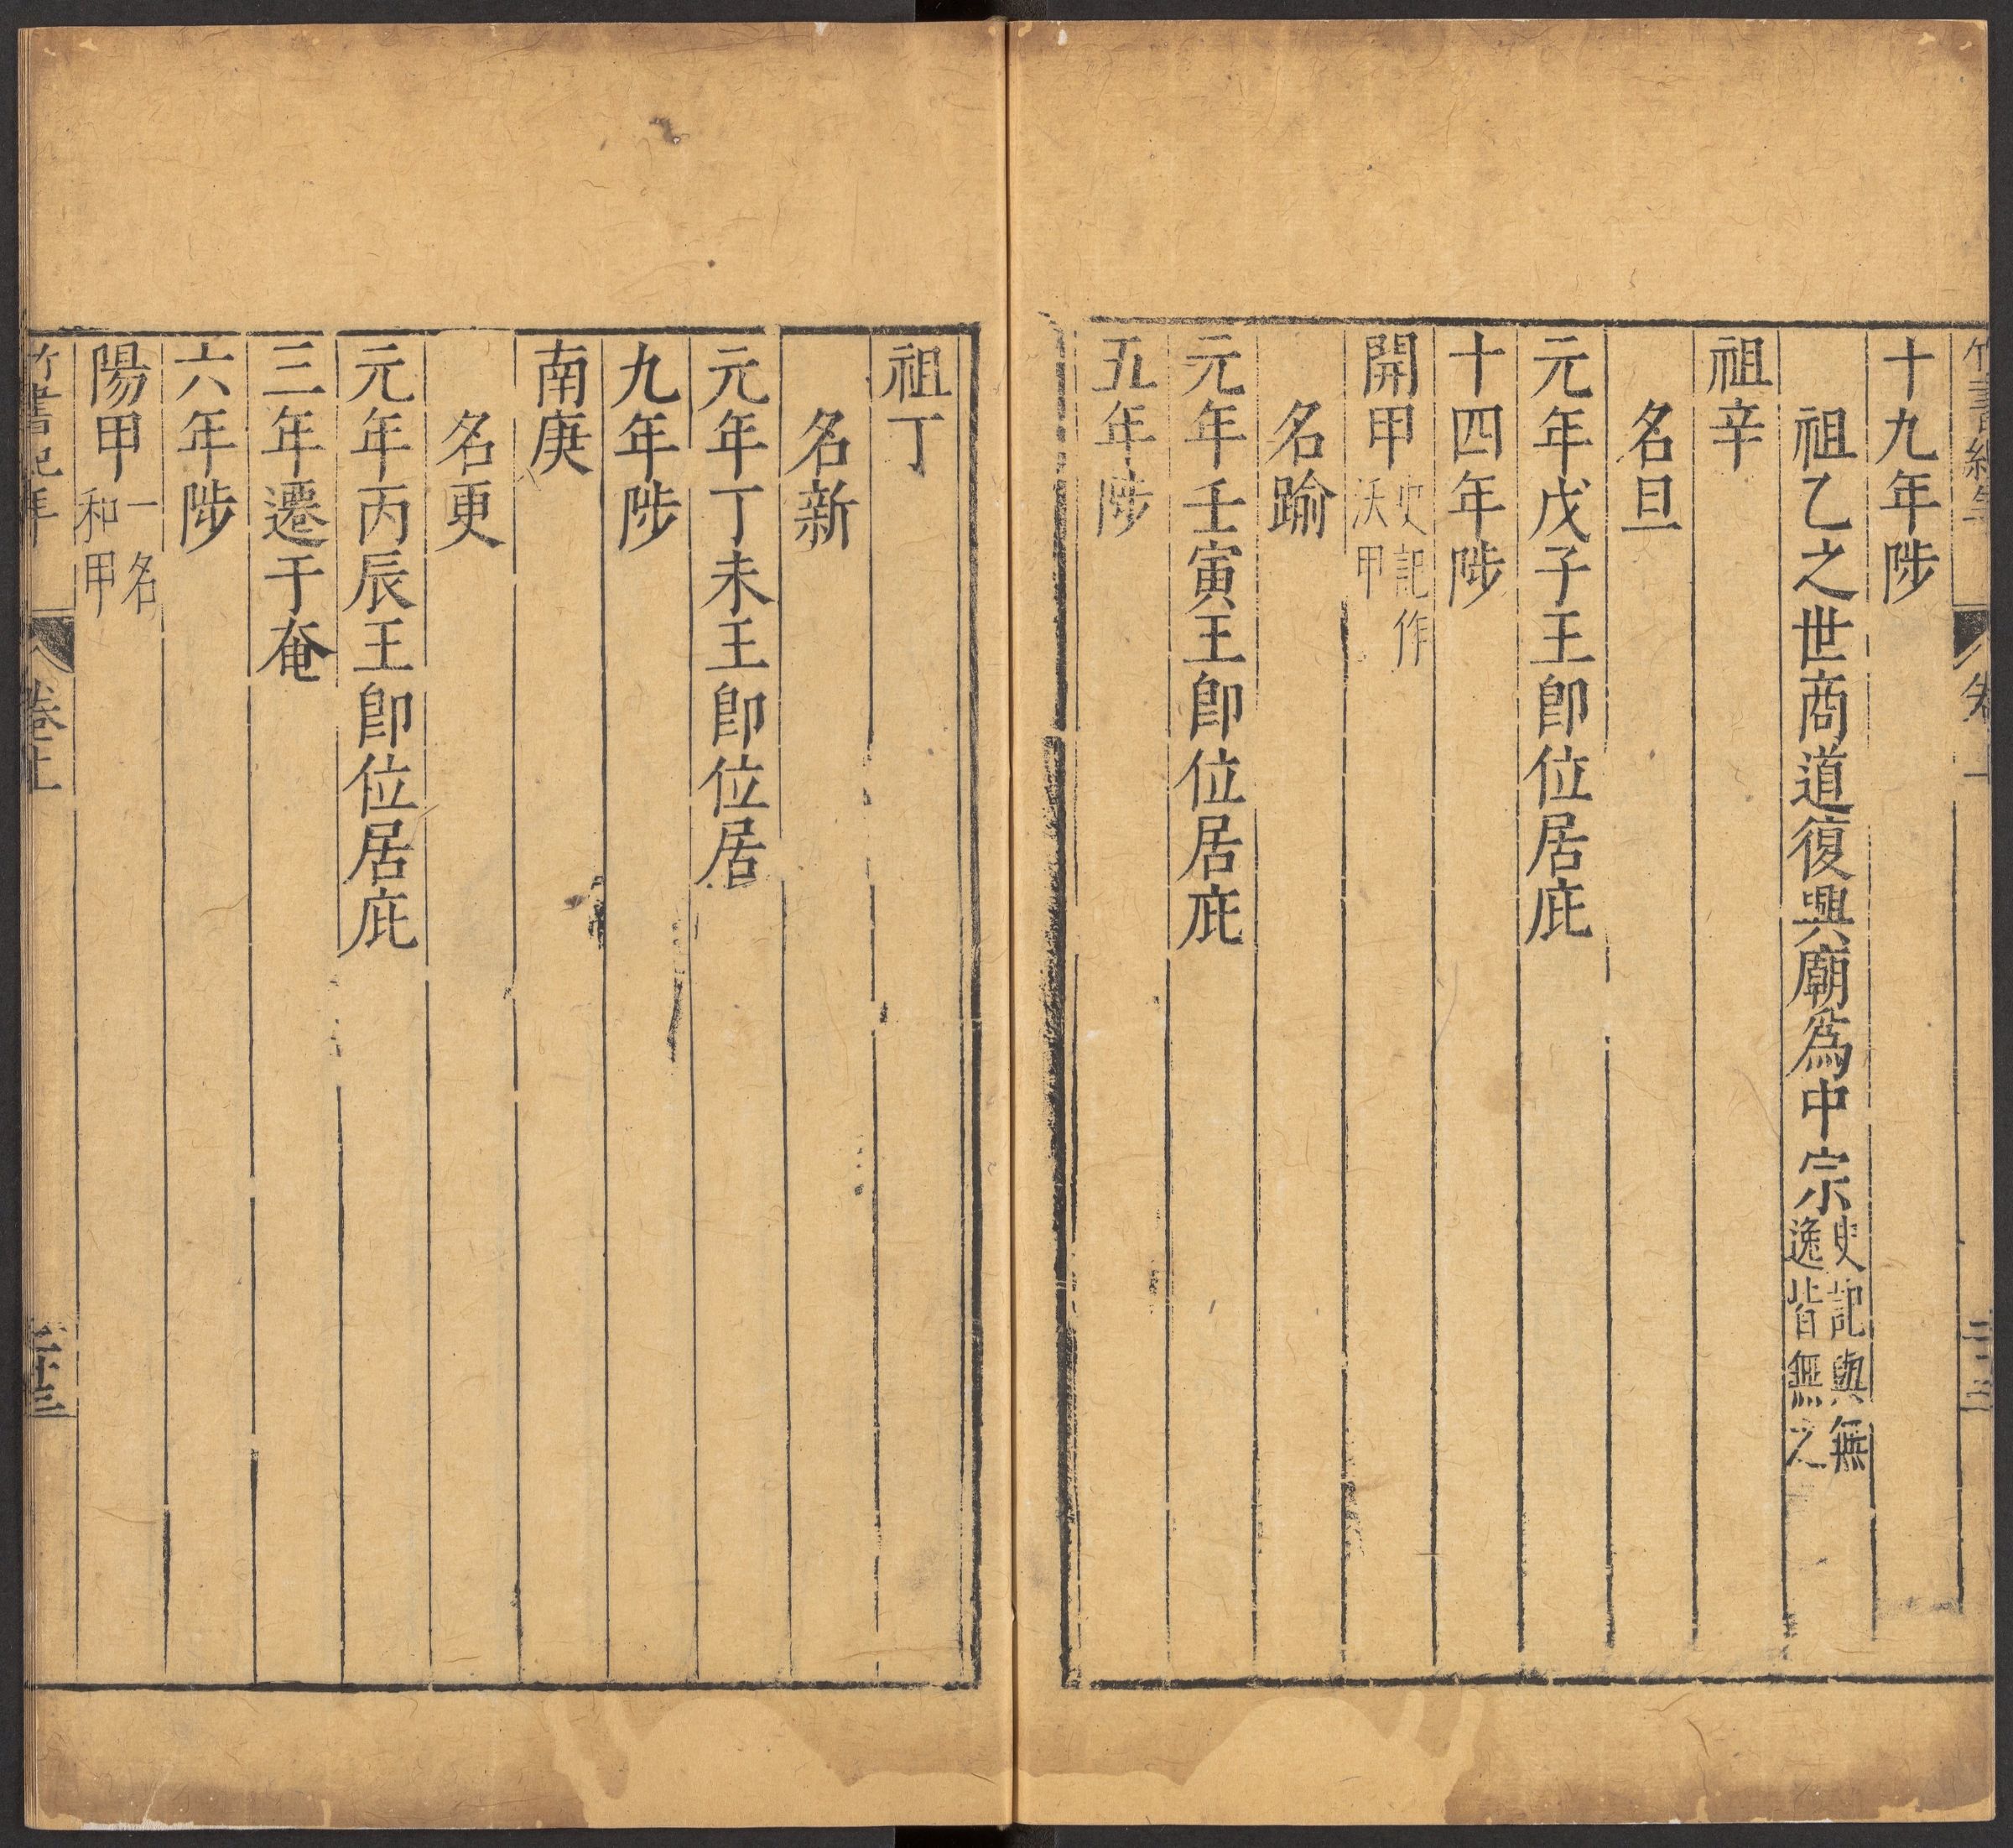 十九年陟
祖乙之世商道復興廟爲中宗史記與無逸皆無之
祖辛
名旦
元年戊子王卽位居庇
十四年陟
開甲史記作沃甲
名踰
元年壬寅王卽位居庇
五年陟
祖丁
名新
元年丁未王卽位居
九年陟
南庚
名更
元年丙辰王卽位居庇
三年遷于奄
六年陟
陽甲一名和甲
竹書紀年
卷上
二十三